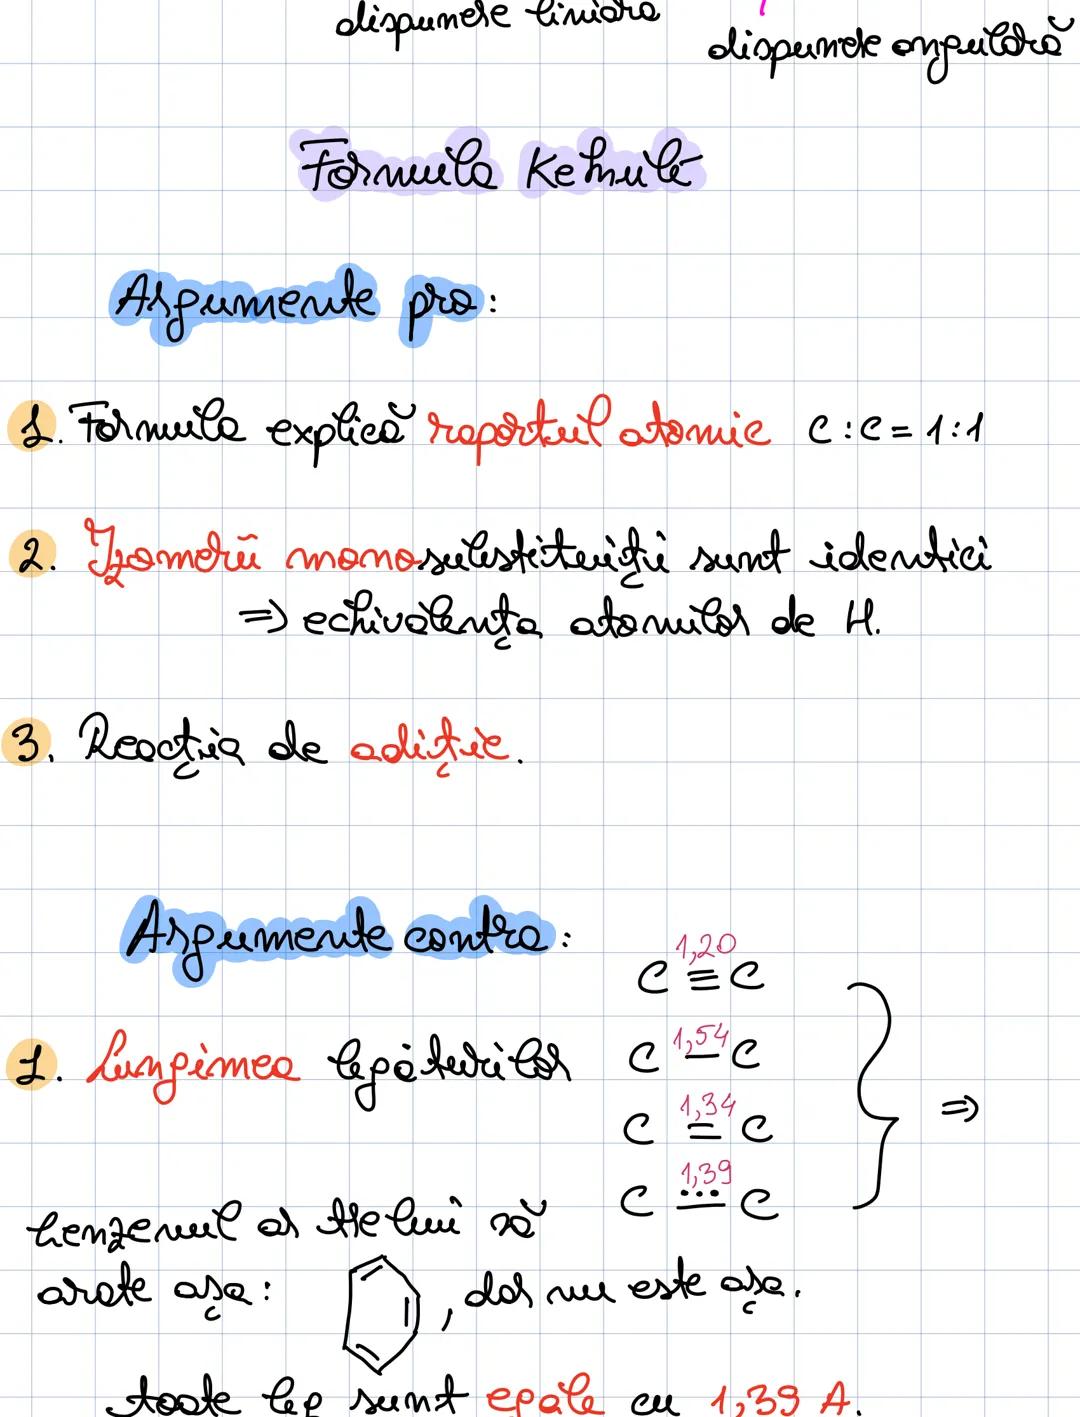 dispunere liniara
dispunere angulară
Formula Kekulé
Argumente pro:
1. Formula explică raportul atomic C:C = 1:1
2. Izomerii monosubstituiți sunt identici
=> echivalența atomilor de H.
3. Reacția de adiție.
Argumente contra:
1,20
C ≡ C
1. Lungimea legăturilor
1,54
C — C
1,34
C = C
=>
1,39
C ⋯ C
benzenul ar trebui să
arate așa: , dar nu este așa.
toate leg sunt egale cu 1,39 A.